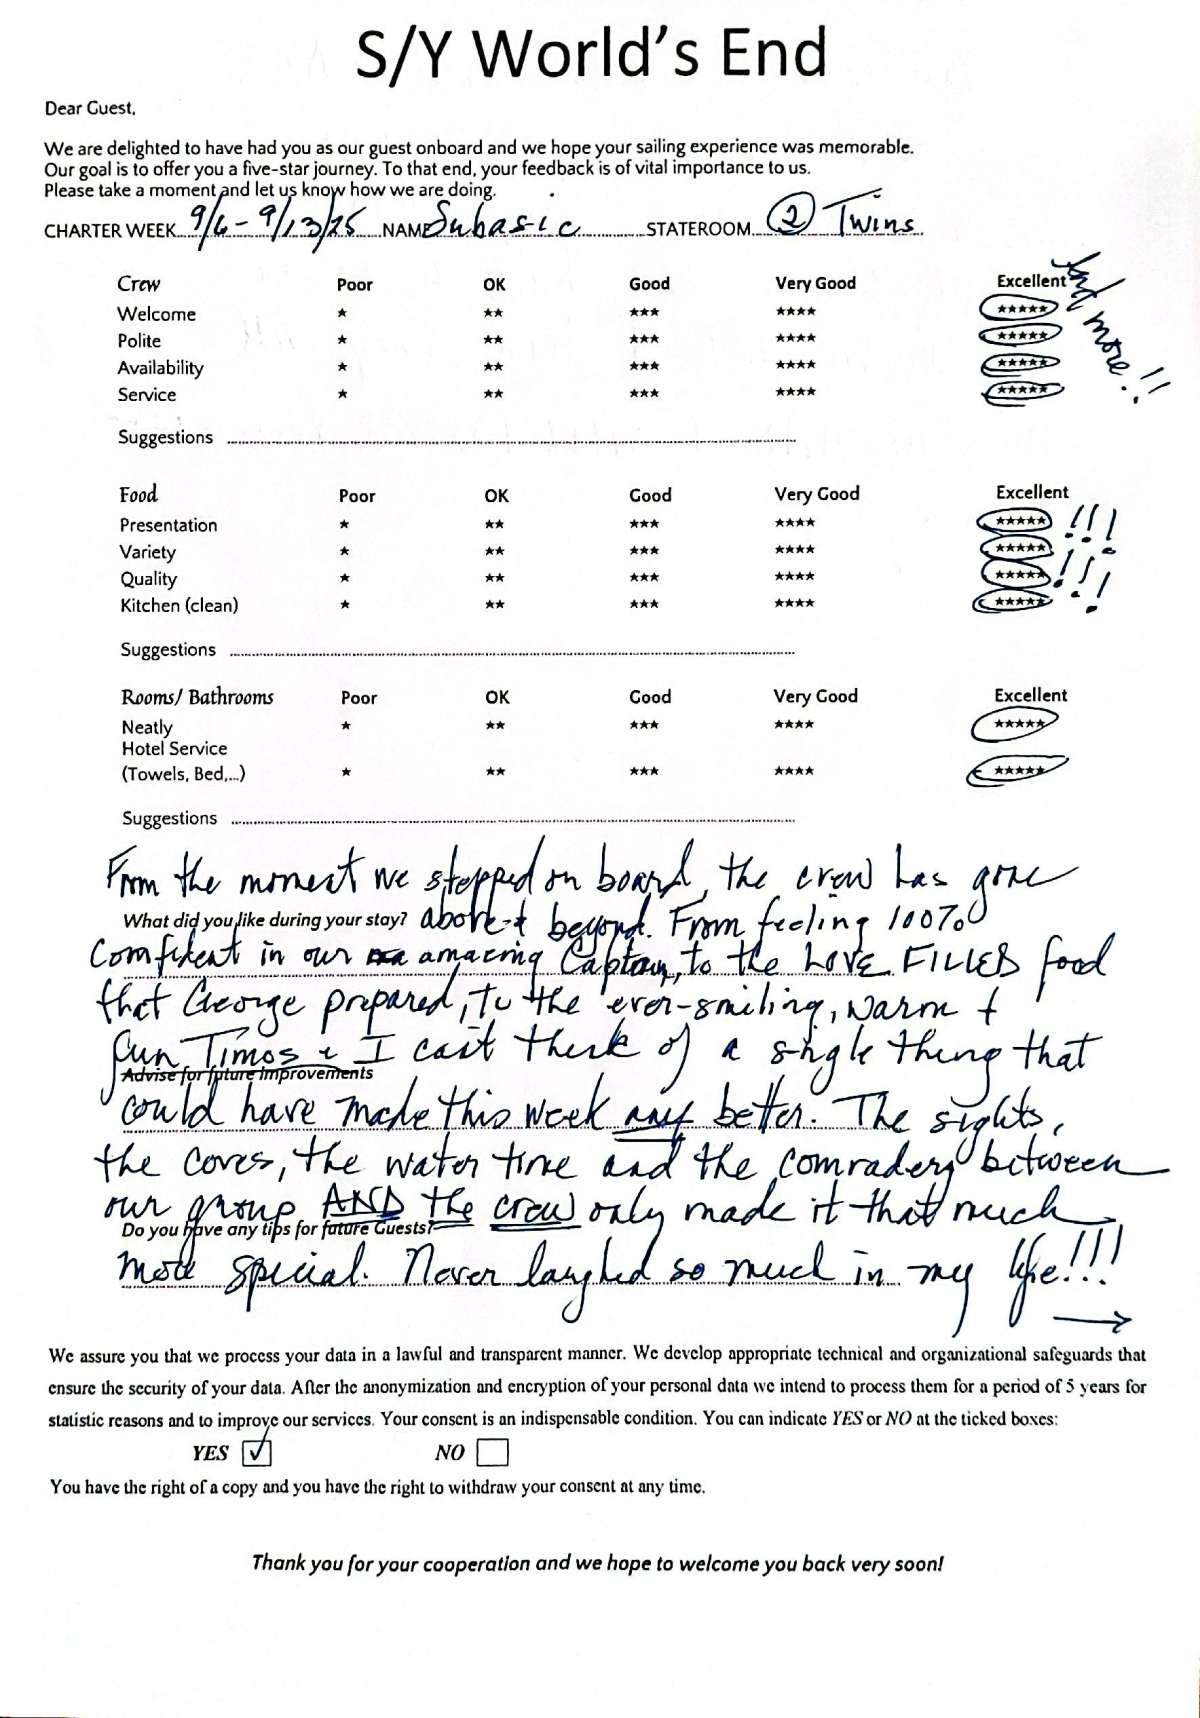 S/Y World's End
Dear Guest,
We are delighted to have had you as our guest onboard and we hope your sailing experience was memorable.
Our goal is to offer you a five-star journey. To that end, your feedback is of vital importance to us.
Please take a moment and let us know how we are doing.
CHARTER WEEK 9/6 - 9/13/25 NAME Subasic STATEROOM 2 Twins
Crew Poor OK Good Very Good Excellent And more!!
Welcome ★ ★★ ★★★ ★★★★ ★★★★★
Polite ★ ★★ ★★★ ★★★★ ★★★★★
Availability ★ ★★ ★★★ ★★★★ ★★★★★
Service ★ ★★ ★★★ ★★★★ ★★★★★
Suggestions
Food Poor OK Good Very Good Excellent
Presentation ★ ★★ ★★★ ★★★★ ★★★★★ !!!
Variety ★ ★★ ★★★ ★★★★ ★★★★★
Quality ★ ★★ ★★★ ★★★★ ★★★★★ !!!
Kitchen (clean) ★ ★★ ★★★ ★★★★ ★★★★★
Suggestions
Rooms/ Bathrooms Poor OK Good Very Good Excellent
Neatly ★ ★★ ★★★ ★★★★ ★★★★★
Hotel Service
(Towels, Bed,...) ★ ★★ ★★★ ★★★★ ★★★★★
Suggestions
From the moment we stepped on board, the crew has gone
What did you like during your stay? above + beyond. From feeling 100%
confident in our amazing Captain, to the LOVE FILLED food
that George prepared, to the ever-smiling, warm +
fun Timos & I can't think of a single thing that
Advise for future improvements
could have made this week any better. The sights,
the coves, the water time and the comradery between
our group AND the crew only made it that much
Do you have any tips for future Guests?
more special. Never laughed so much in my life!!!
→
We assure you that we process your data in a lawful and transparent manner. We develop appropriate technical and organizational safeguards that
ensure the security of your data. After the anonymization and encryption of your personal data we intend to process them for a period of 5 years for
statistic reasons and to improve our services. Your consent is an indispensable condition. You can indicate YES or NO at the ticked boxes:
YES ✓ NO
You have the right of a copy and you have the right to withdraw your consent at any time.
Thank you for your cooperation and we hope to welcome you back very soon!